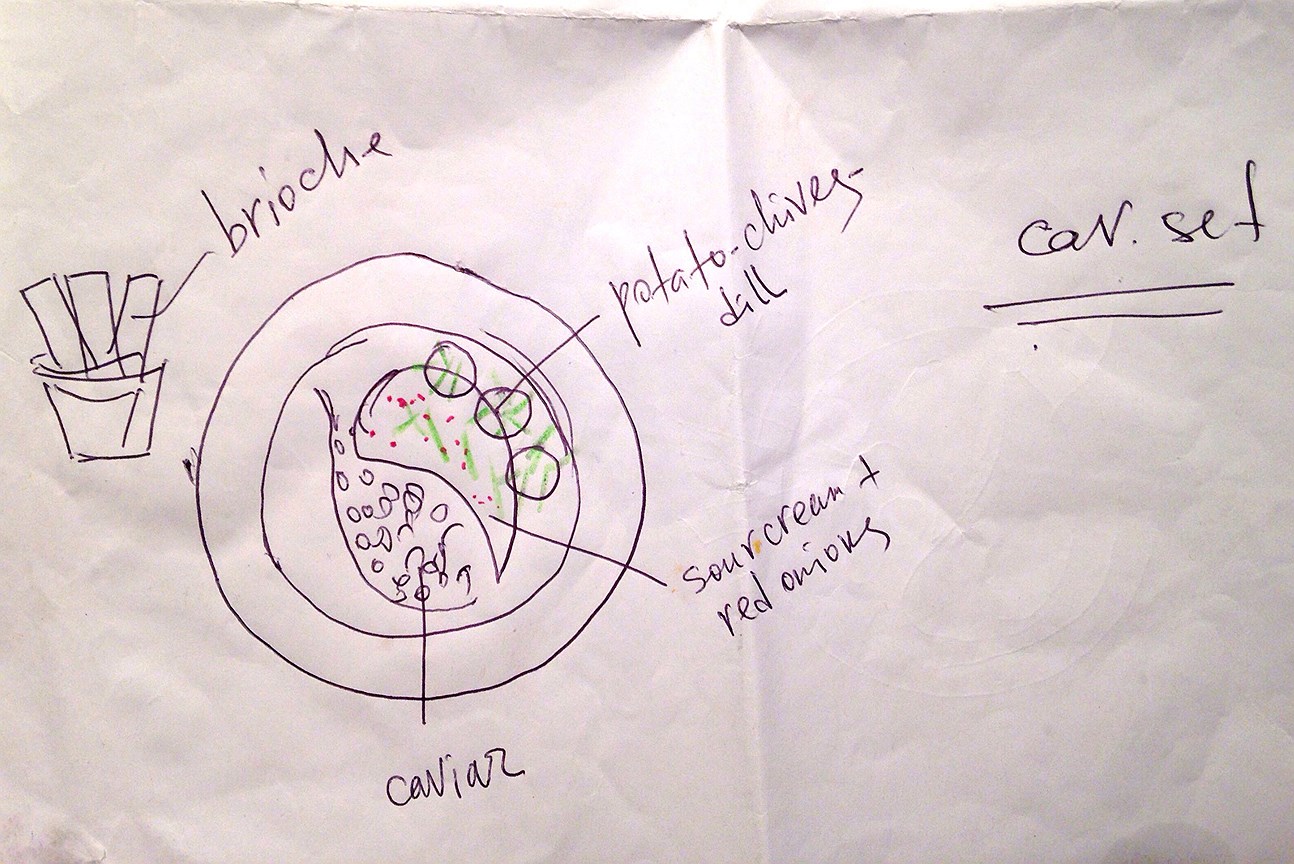 brioche
potato-chives-
dill
cav. set
sourcream +
red onions
caviar